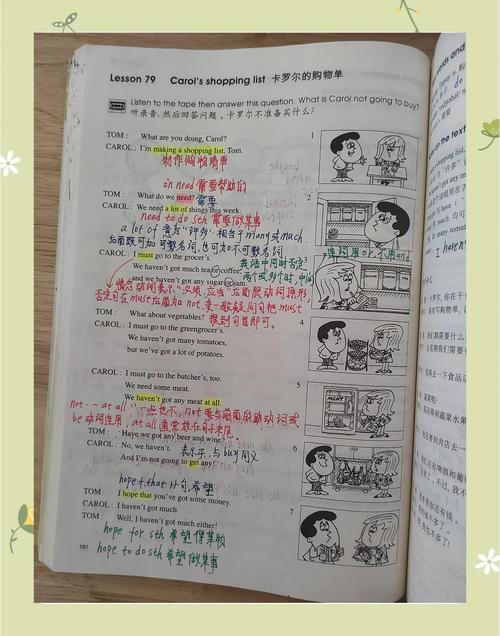 Lesson 79 Carol's shopping list 卡罗尔的购物单
Listen to the tape then answer this question. What is Carol not going to buy?
听录音,然后回答问题。卡罗尔不准备买什么?
TOM: What are you doing, Carol? 1
CAROL: I'm making a shopping list, Tom.
制作购物清单
in need 需要帮助的
TOM: What do we need? 需要 2
CAROL: We need a lot of things this week.
need to do sth 需要做某事
a lot of 意为"许多"相当于many或much.
后面既可加可数名词,也可加不可数名词
CAROL: I must go to the grocer's. 3
英语中同时否定
We haven't got much tea or coffee,
两个或多个时,中间
连词用or.不用and
and we haven't got any sugar or jam.
情态动词表示"必须,应当"后面跟动词原形,
否定句在must后面加not.变一般疑问句把must
提到句首即可。
TOM: What about vegetables? 4
CAROL: I must go to the greengrocer's.
We haven't got many tomatoes,
but we've got a lot of potatoes.
CAROL: I must go to the butcher's, too. 5
We need some meat.
We haven't got any meat at all.
MEAT
not--at all "一点也不",not要与前面的助动词或
be动词连用,at all 通常放在句子末尾.
TOM: Have we got any beer and wine? 6
CAROL: No, we haven't.
表示买,与buy同义
And I'm not going to get any!
hope+that 从句,希望
TOM: I hope that you've got some money. 7
CAROL: I haven't got much.
TOM: Well, I haven't got much either!
hope for sth 希望得某物
hope to do sth 希望做某事
161